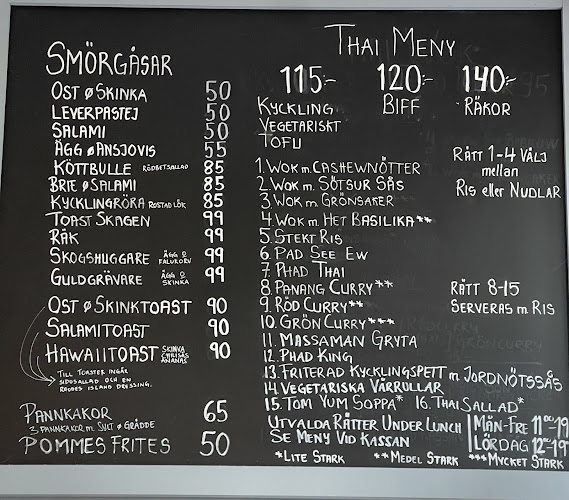 SMÖRGÅSAR
OST Ø SKINKA 50
LEVERPASTEJ 50
SALAMI 50
ÄGG Ø ANSJOVIS 55
KÖTTBULLE RÖDBETSALLAD 85
BRIE Ø SALAMI 85
KYCKLINGRÖRA ROSTAD LÖK 85
TOAST SKAGEN 99
RÄK 99
SKOGSHUGGARE ÄGG O FALUKORV 99
GULDGRÄVARE ÄGG O SKINKA 99
OST Ø SKINKTOAST 90
SALAMITOAST 90
HAWAIITOAST SKINKA 90
ANANAS
TILL TOASTER INGÅR
SIDOSALLAD OCH EN
RHODES ISLAND DRESSING.
PANNKAKOR 65
3 PANNKAKOR M. SYLT Ø GRÄDDE
POMMES FRITES 50
THAI MENY
115:- 120:- 140:-
KYCKLING BIFF RÄKOR
VEGETARISKT
TOFU
1. WOK M. CASHEWNÖTTER
2. WOK M. SÖTSUR SÅS
3. WOK M. GRÖNSAKER
4. WOK M. HET BASILIKA**
5. STEKT RIS
6. PAD SEE EW
7. PHAD THAI
8. PANANG CURRY**
9. RÖD CURRY**
10. GRÖN CURRY***
11. MASSAMAN GRYTA
12. PHAD KING
13. FRITERAD KYCKLINGSPETT M. JORDNÖTSSÅS
14. VEGETARISKA VÅRRULLAR
15. TOM YUM SOPPA* 16. THAI SALLAD*
RÄTT 1-4 VÄLJ
mellan
RIS eller NUDLAR
RÄTT 8-15
SERVERAS M. RIS
UTVALDA RÄTTER UNDER LUNCH
SE MENY VID KASSAN
MÅN-FRE 11⁰⁰-19
LÖRDAG 12⁰⁰-19
*LITE STARK **MEDEL STARK ***MYCKET STARK